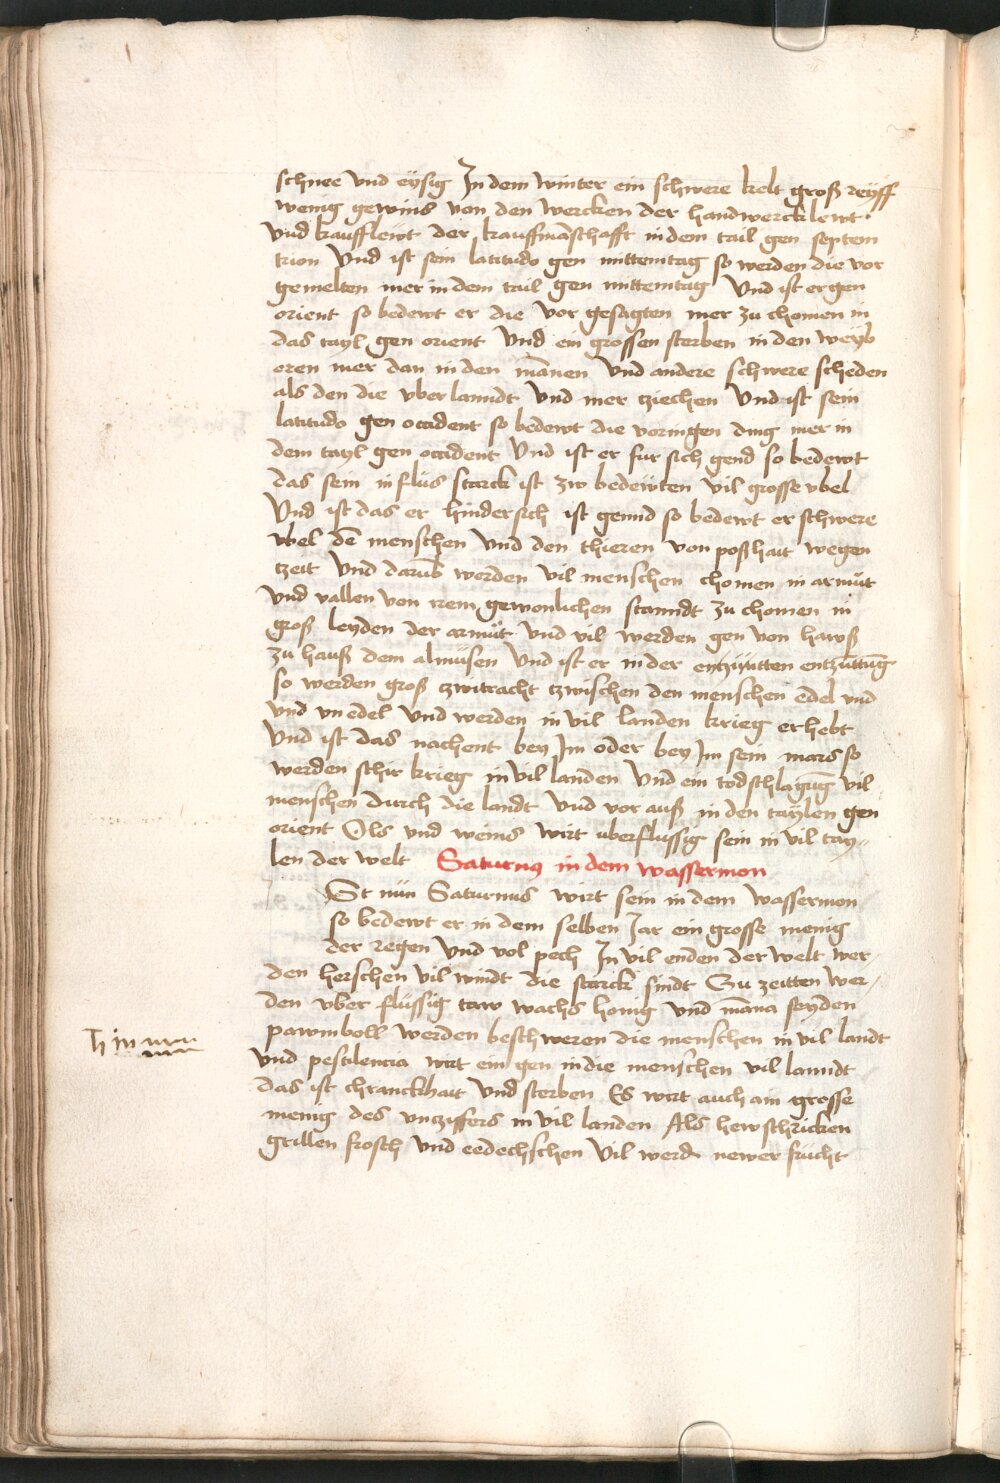 schnee vnd eÿsig In dem winter ein schwere kelt groß reÿff
wenig gewins von den wercken der handwercklewt
vnd kaufflewt der kauffmāschafft in dem tail gen septem
trion Vnd ist sein latitudo gen mittemtag so werden die vor
gemelten mer in dem tail gen mittemtag Vnd ist er gen
orient so bedewt er die vor gesagten mer zu chomen in
das tayl gen orient Vnd ein grossen sterben in den weyb
oren mer dan in den mānen Vnd andere schwere scheden
als den die vber lanndt Vnd mer cziechen Vnd ist sein
latitudo gen occident so bedewt die voringen ding mer in
dem tayl gen occident Vnd ist er fur sich gend so bedewt
das sein in flüs starck ist zw bedewten vil grosse vbel
Vnd ist das er hinder sich ist gennd so bedewt er schwere
vbel dē menschen Vnd den thieren von poßhait wegen
czeit Vnd darub̄ werden vil menschen chomen in armüt
vnd vallen von irem gewonlichen stanndt zu chomen in
groß leyden der armüt vnd vil werden gen von hawß
zu hauß dem almüsen Vnd ist er in der entzüntten entzūttūg
so werden groß czwitracht czwischen den menschen edel vnd
vnd vn edel Vnd werden in vil landen krieg erhebt
Vnd ist das nachent bey Im oder bey Im sein mars so
werden schir krieg in vil landen Vnd ein todschlagūg vil
menschen durch die landt Vnd vor auß in den taylen gen
orient Ols vnd weins wirt uberflussig sein in vil tay
len der welt Saturnus in dem wassermon
St nün Saturnus wirt sein in dem wassermon
so bedewt er in dem selben Jar ein grosse menig
der regen Vnd vol pech In vil enden der welt wer
den herschen vil windt die starck sindt Zu zeitten wer
den vber flüssig taw wachs honig vnd māna seyden
pawmboll werden beschweren die menschen in vil landt
vnd pestilencia wirt ein gen in die menschen vil lanndt
das ist chranckhait Vnd sterben Es wirt auch ain grosse
menig des vncziffers in vil landen Als hewschricken
grillen frosch vnd eedechschen Vil werdn newer frücht
♄ in ♒